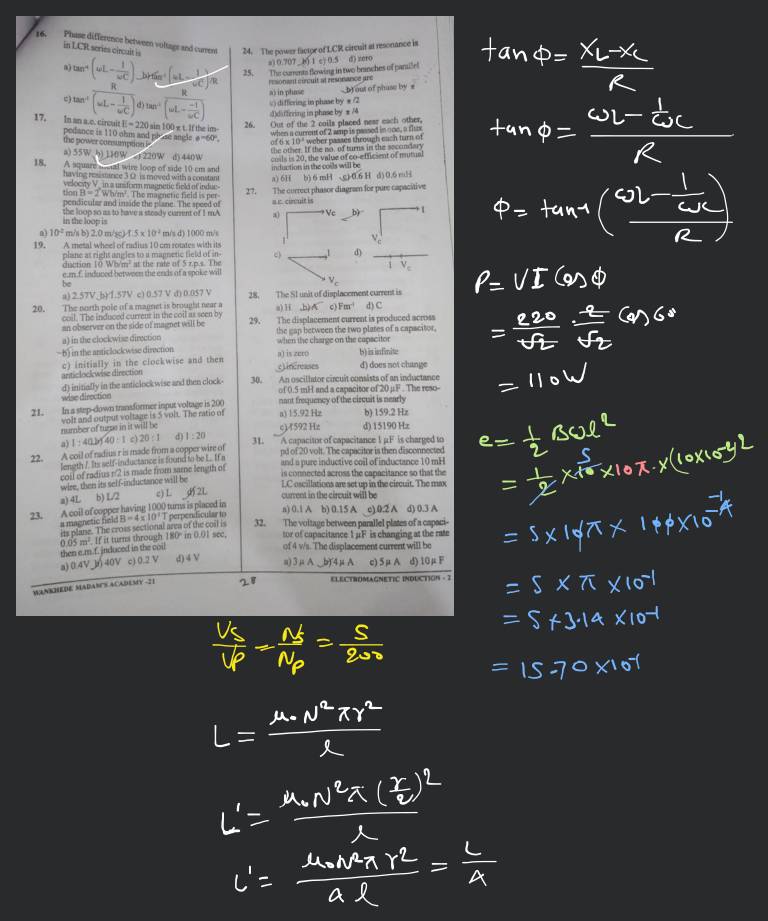 16. Phase difference between voltage and current
in LCR series circuit is
a) tan⁻¹ (ωL – 1/ωC) / R b) tan⁻¹ (ωL – 1/ωC)/R
c) tan⁻¹ R / (ωL – 1/ωC) d) tan⁻¹ R / (ωL – –1/ωC)
17. In an a.c. circuit E = 220 sin 100 π t. If the im-
pedance is 110 ohm and phase angle φ=60°,
the power consumption is
a) 55W b) 110W c) 220W d) 440W
18. A square metal wire loop of side 10 cm and
having resistance 3 Ω is moved with a constant
velocity V₀ in a uniform magnetic field of induc-
tion B = 2 Wb/m². The magnetic field is per-
pendicular and inside the plane. The speed of
the loop so as to have a steady current of 1 mA
in the loop is
a) 10⁻² m/s b) 2.0 m/s c) 1.5 x 10⁻² m/s d) 1000 m/s
19. A metal wheel of radius 10 cm rotates with its
plane at right angles to a magnetic field of in-
duction 10 Wb/m² at the rate of 5 r.p.s. The
e.m.f. induced between the ends of a spoke will
be
a) 2.57V b) 1.57V c) 0.57 V d) 0.057 V
20. The north pole of a magnet is brought near a
coil. The induced current in the coil as seen by
an observer on the side of magnet will be
a) in the clockwise direction
b) in the anticlockwise direction
c) initially in the clockwise and then
anticlockwise direction
d) initially in the anticlockwise and then clock-
wise direction
21. In a step-down transformer input voltage is 200
volt and output voltage is 5 volt. The ratio of
number of turns in it will be
a) 1 : 40 b) 40 : 1 c) 20 : 1 d) 1 : 20
22. A coil of radius r is made from a copper wire of
length l. Its self-inductance is found to be L. If a
coil of radius r/2 is made from same length of
wire, then its self-inductance will be
a) 4L b) L/2 c) L d) 2L
23. A coil of copper having 1000 turns is placed in
a magnetic field B = 4 x 10⁻⁵ T perpendicular to
its plane. The cross sectional area of the coil is
0.05 m². If it turns through 180° in 0.01 sec,
then e.m.f. induced in the coil
a) 0.4V b) 40V c) 0.2 V d) 4 V
WANKHEDE MADAM'S ACADEMY -21
24. The power factor of LCR circuit at resonance is
a) 0.707 b) 1 c) 0.5 d) zero
25. The currents flowing in two branches of parallel
resonant circuit at resonance are
a) in phase b) out of phase by π
c) differing in phase by π /2
d) differing in phase by π /4
26. Out of the 2 coils placed near each other,
when a current of 2 amp is passed in one, a flux
of 6 x 10⁻² weber passes through each turn of
the other. If the no. of turns in the secondary
coils is 20, the value of co-efficient of mutual
induction in the coils will be
a) 6H b) 6 mH c) 0.6 H d) 0.6 mH
27. The correct phasor diagram for pure capacitive
a.c. circuit is
a) Vc b) I
I Vc
c) I d) I Vc
Vc
28. The SI unit of displacement current is
a) H b) A c) Fm⁻¹ d) C
29. The displacement current is produced across
the gap between the two plates of a capacitor,
when the charge on the capacitor
a) is zero b) is infinite
c) increases d) does not change
30. An oscillator circuit consists of an inductance
of 0.5 mH and a capacitor of 20 μF. The reso-
nant frequency of the circuit is nearly
a) 15.92 Hz b) 159.2 Hz
c) 1592 Hz d) 15190 Hz
31. A capacitor of capacitance 1 μF is charged to
pd of 20 volt. The capacitor is then disconnected
and a pure inductive coil of inductance 10 mH
is connected across the capacitor so that the
LC oscillations are set up in the circuit. The max
current in the circuit will be
a) 0.1 A b) 0.15 A c) 0.2 A d) 0.3 A
32. The voltage between parallel plates of a capaci-
tor of capacitance 1 μF is changing at the rate
of 4 v/s. The displacement current will be
a) 3 μ A b) 4 μ A c) 5 μ A d) 10 μ F
28
ELECTROMAGNETIC INDUCTION - 2
tan Φ = XL-XC / R
tan Φ = (ωL - 1/ωC) / R
Φ = tan⁻¹ ((ωL - 1/ωC) / R)
P = VI Cos Φ
= 220/√2 · 2/√2 Cos 60
= 110W
e = 1/2 Bωl²
= 1/2 × 10 × 10π × (10×10⁻²)²
5
= 5 × 10π × 100×10⁻⁴
-1
= 5 × π × 10⁻¹
= 5 × 3.14 × 10⁻¹
= 15.70 × 10⁻¹
Vs/Vp = Ns/Np = 5/200
L = μ₀ N² π r² / l
L' = μ₀ N² π (r/2)² / l
L' = μ₀ N² π r² / 4 l = L/4